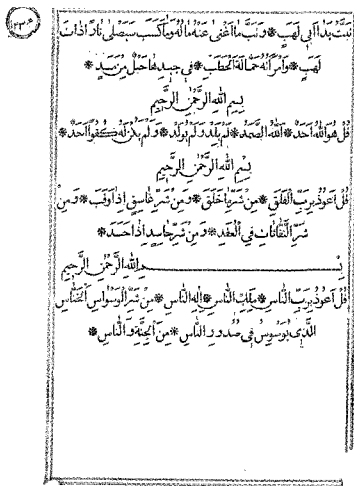 تَبَّتْ يَدَا اَبى لَهَبٍ ❋ وَتَبَّ مَا اَغْنٰى عَنْهُ مَالُهُ وَمَا كَسَبَ سَيَصْلٰى نَارًا ذَاتَ
لَهَبٍ ❋ وَامْرَاَتُهُ حَمَّالَةَ الْحَطَبِ ❋ فى جيدِهَا حَبْلٌ مِنْ مَسَدٍ ❋
بِسْمِ اللهِ الرَّحْمٰنِ الرَّحيمِ
قُلْ هُوَ اللهُ اَحَدٌ ❋ اَللهُ الصَّمَدُ ❋ لَمْ يَلِدْ وَلَمْ يُولَدْ ❋ وَلَمْ يَكُنْ لَهُ كُفُوًا اَحَدٌ ❋
بِسْمِ اللهِ الرَّحْمٰنِ الرَّحيمِ
قُلْ اَعُوذُ بِرَبِّ الْفَلَقِ ❋ مِنْ شَرِّ مَا خَلَقَ ❋ وَمِنْ شَرِّ غَاسِقٍ اِذَا وَقَبَ ❋ وَمِنْ
شَرِّ النَّفَّاثَاتِ فِى الْعُقَدِ ❋ وَمِنْ شَرِّ حَاسِدٍ اِذَا حَسَدَ ❋
بِسْمِ اللهِ الرَّحْمٰنِ الرَّحيمِ
قُلْ اَعُوذُ بِرَبِّ النَّاسِ ❋ مَلِكِ النَّاسِ ❋ اِلٰهِ النَّاسِ ❋ مِنْ شَرِّ الْوَسْوَاسِ الْخَنَّاسِ
اَلَّذى يُوَسْوِسُ فى صُدُورِ النَّاسِ ❋ مِنَ الْجِنَّةِ وَالنَّاسِ ❋